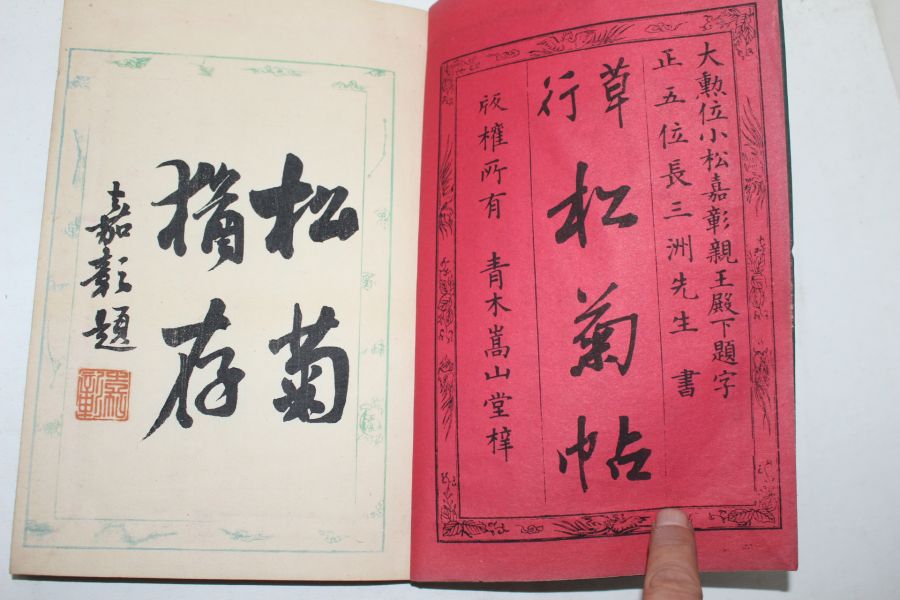 大勲位小松嘉彰親王殿下題字
正五位長三洲先生 書
草行 松菊帖
版權所有 青木嵩山堂梓
松菊
猶存
嘉彰題